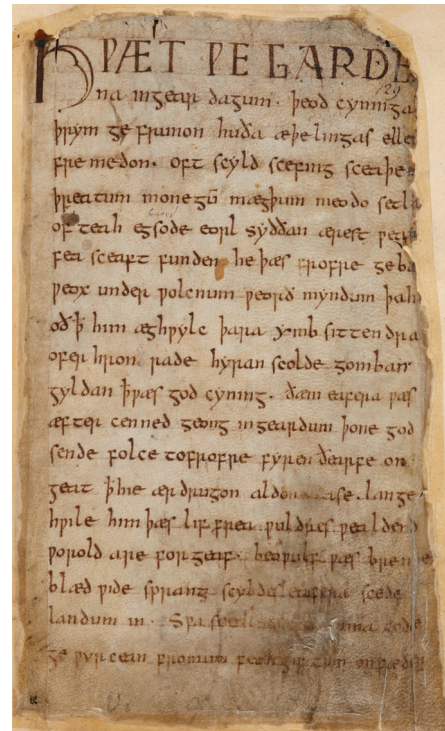 HǷÆT ǷE GARDE
129
na ingear dagum. þeod cyninga
þrym ge frunon huða æþelingas elle
fremedon. oft scyld scefing sceaþe
þreatum monegū mægþum meodo setla
of teah egsode eorl syððan ærest ƿear
fea sceaft funden he þæs frofre geba
ƿeox under ƿolcnum ƿeorð myndum þah
oð ꝥ him æghƿylc þara ymb sittendra
ofer hron rade hyran scolde gomban
gyldan ꝥ ƿæs god cyning. ðæm eafera ƿæs
æfter cenned geong ingeardum þone god
sende folce tofrofre fyren ðearfe on
geat ꝥ hie ær drugon aldor ase. lange
hƿile him þæs lif frea ƿuldres ƿealdend
ƿorold are forgeaf. beoƿulf ƿæs breme
blæd ƿide sprang scyldes eafera scede
landum in. Sƿa guma gode
ge ƿyrcean fromum feoh giftum on fæder